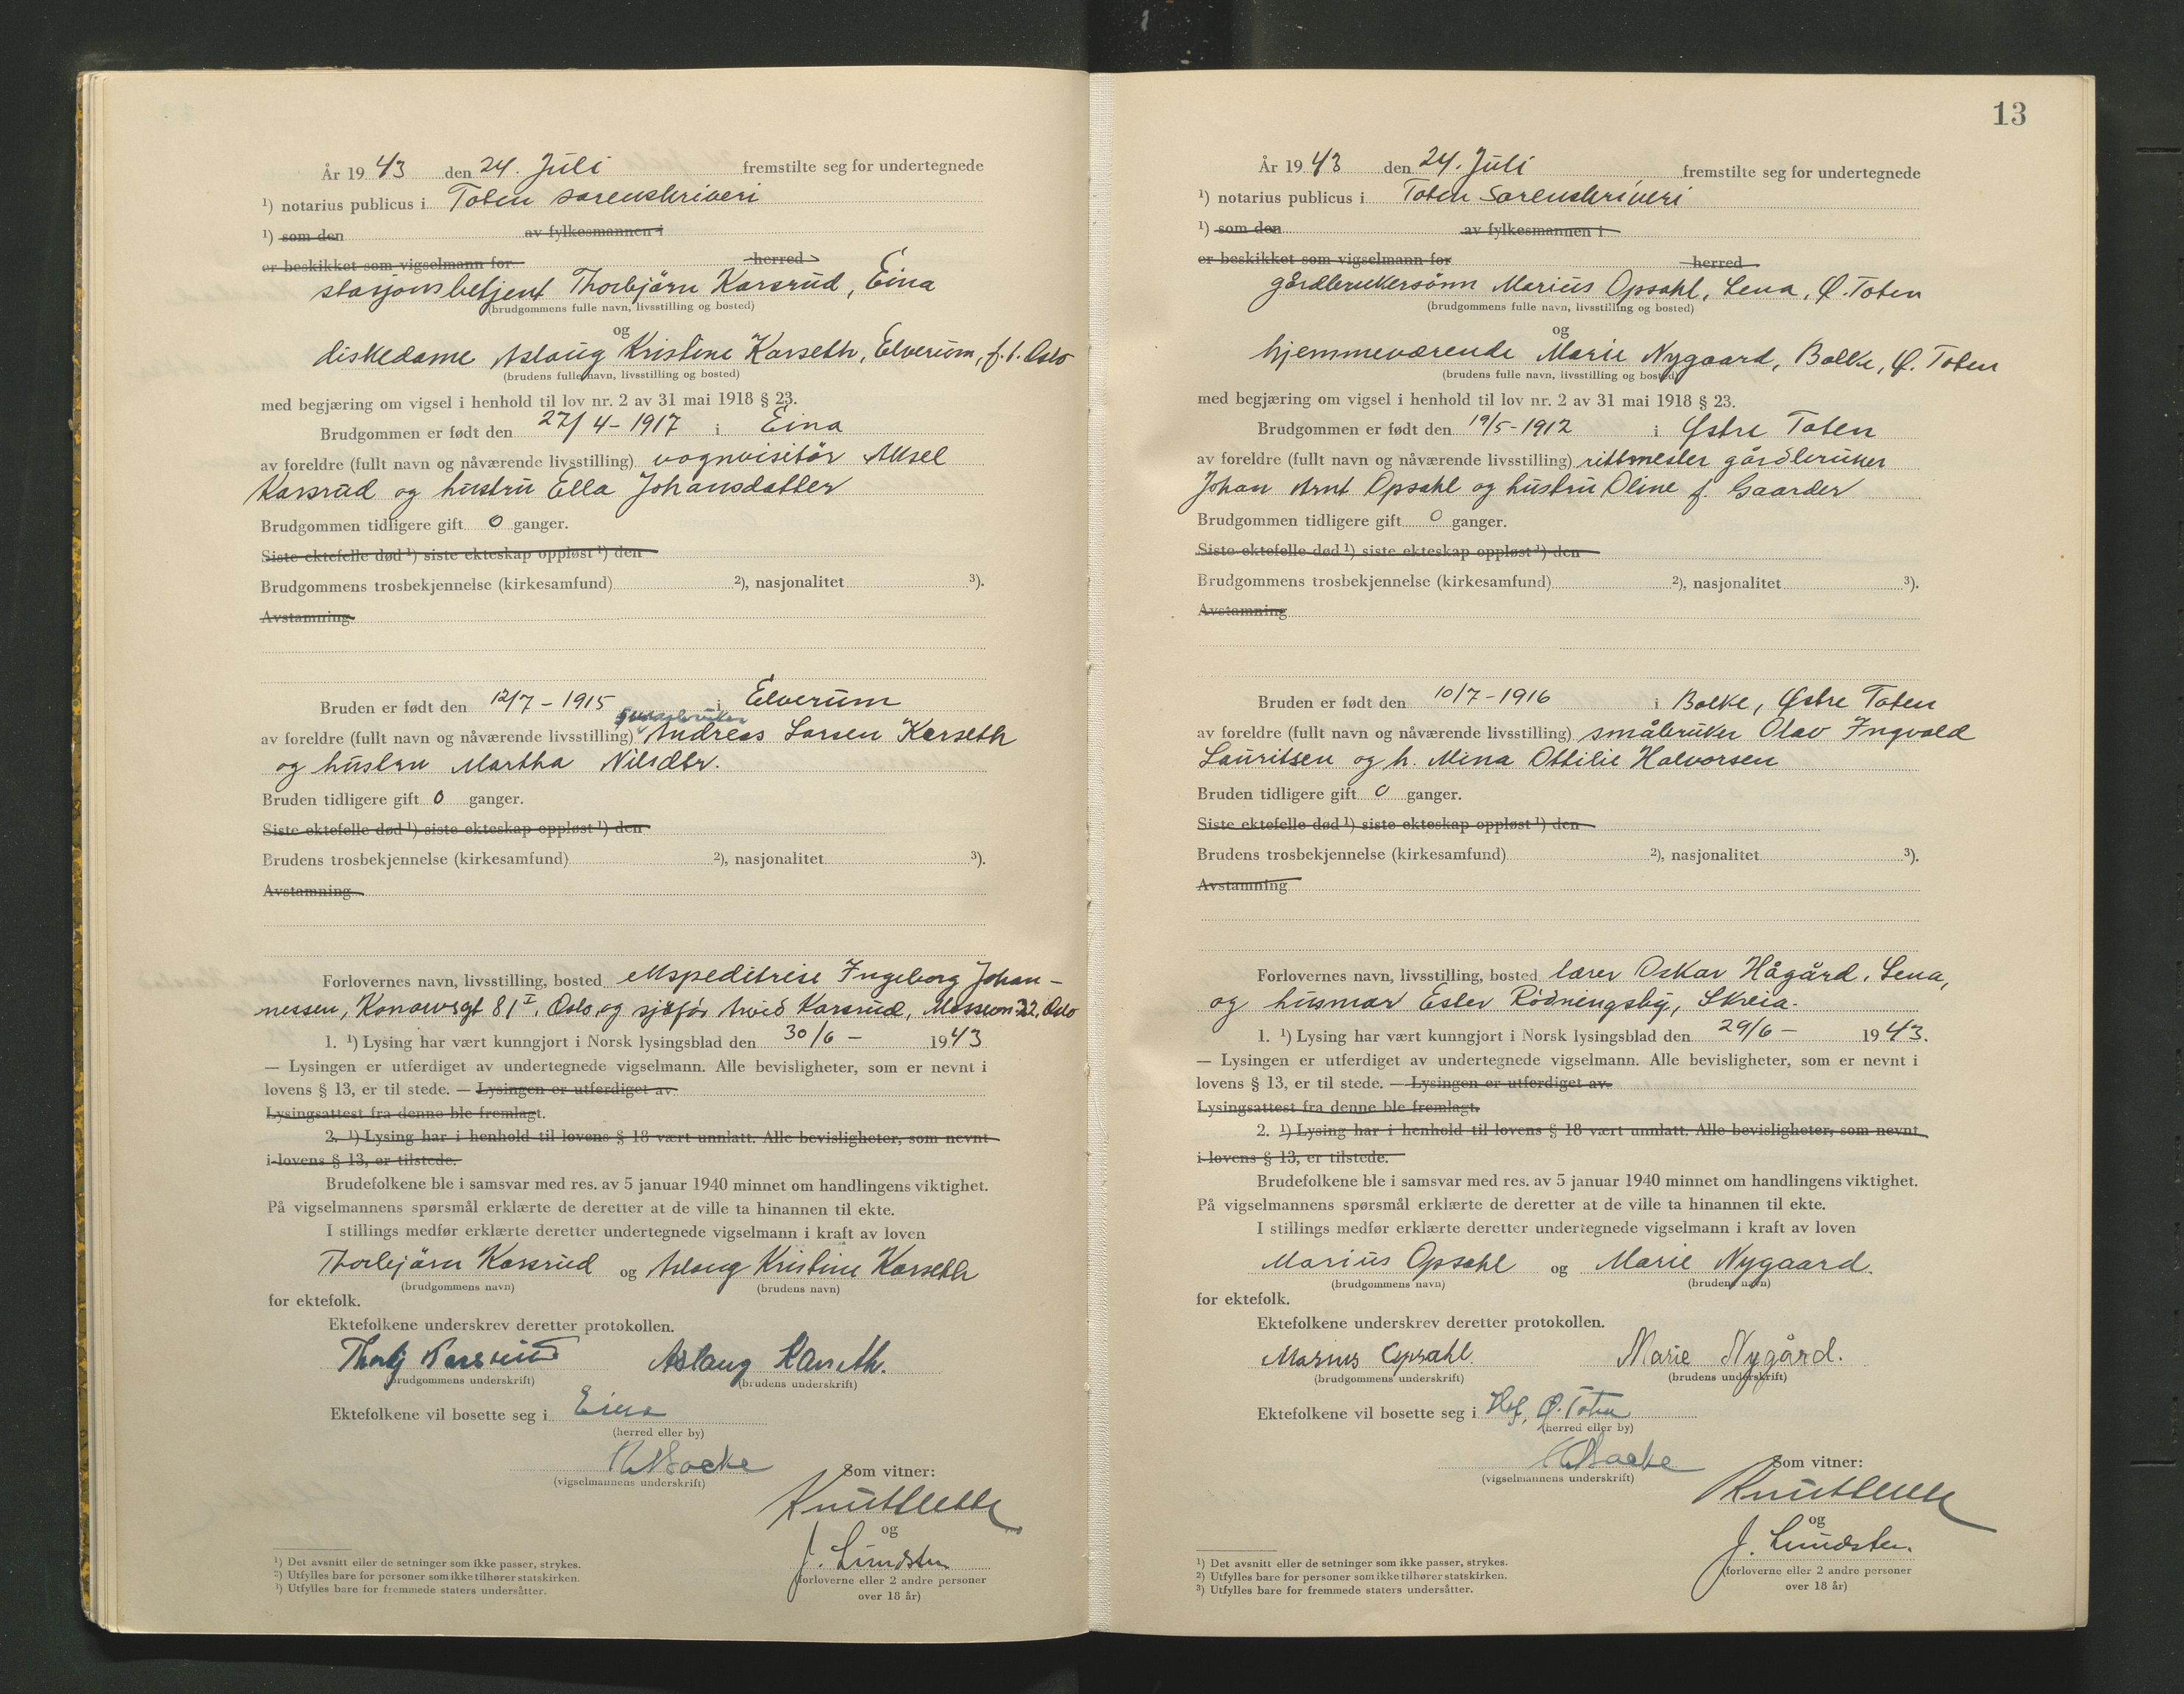 År 19 43 den 24. Juli fremstilte seg for undertegnede
¹) notarius publicus i Toten sorenskriveri
¹) som den av fylkesmannen i
er beskikket som vigselmann for herred
stasjonsbetjent Thorbjörn Karsrud, Eina
(brudgommens fulle navn, livsstilling og bosted)
og
diskedame Aslaug Kristine Karseth, Elverum, f.t. Oslo
(brudens fulle navn, livsstilling og bosted)
med begjæring om vigsel i henhold til lov nr. 2 av 31 mai 1918 § 23.
Brudgommen er født den 27/4 - 1917 i Eina
av foreldre (fullt navn og nåværende livsstilling) vognvisitör Aksel
Karsrud og hustru Ella Johansdatter
Brudgommen tidligere gift 0 ganger.
Siste ektefelle død ¹) siste ekteskap oppløst ¹) den
Brudgommens trosbekjennelse (kirkesamfund) ²), nasjonalitet ³).
Avstamning
Bruden er født den 12/7 - 1915 i Elverum
av foreldre (fullt navn og nåværende livsstilling) Andreas Larsen Karseth
og hustru Martha Nilsdtr.
Bruden tidligere gift 0 ganger.
Siste ektefelle død ¹) siste ekteskap oppløst ¹) den
Brudens trosbekjennelse (kirkesamfund) ²), nasjonalitet ³).
Avstamning
Forlovernes navn, livsstilling, bosted ekspeditrise Ingeborg Johan-
nessen, Konowsgt 81 I, Oslo, og sjåför Arvid Karsrud, 32, Oslo
1. ¹) Lysing har vært kunngjort i Norsk lysingsblad den 30/6 - 1943
— Lysingen er utferdiget av undertegnede vigselmann. Alle bevisligheter, som er nevnt i
lovens § 13, er til stede. — Lysingen er utferdiget av
Lysingsattest fra denne ble fremlagt.
2. ¹) Lysing har i henhold til lovens § 18 vært unnlatt. Alle bevisligheter, som nevnt
i lovens § 13, er tilstede.
Brudefolkene ble i samsvar med res. av 5 januar 1940 minnet om handlingens viktighet.
På vigselmannens spørsmål erklærte de deretter at de ville ta hinannen til ekte.
I stillings medfør erklærte deretter undertegnede vigselmann i kraft av loven
Thorbjörn Karsrud og Aslaug Kristine Karseth
(brudgommens navn) (brudens navn)
for ektefolk.
Ektefolkene underskrev deretter protokollen.
Thorbj Karsrud Aslaug Karseth.
(brudgommens underskrift) (brudens underskrift)
Ektefolkene vil bosette seg i Eina
(herred eller by)
(vigselmannens underskrift)
Som vitner:
og
J. Lundsten
(forloverne eller 2 andre personer
over 18 år)
¹) Det avsnitt eller de setninger som ikke passer, strykes.
²) Utfylles bare for personer som ikke tilhører statskirken.
³) Utfylles bare for fremmede staters undersåtter.
13
År 19 43 den 24. Juli fremstilte seg for undertegnede
¹) notarius publicus i Toten Sorenskriveri
¹) som den av fylkesmannen i
er beskikket som vigselmann for herred
gårdbrukersönn Marius Opsahl, Lena, Ø. Toten
(brudgommens fulle navn, livsstilling og bosted)
og
hjemmeværende Marie Nygaard, Bolke, Ø. Toten
(brudens fulle navn, livsstilling og bosted)
med begjæring om vigsel i henhold til lov nr. 2 av 31 mai 1918 § 23.
Brudgommen er født den 19/5 - 1912 i Østre Toten
av foreldre (fullt navn og nåværende livsstilling) rittmester gårdbruker
Johan Arnt Opsahl og hustru Oline f. Gaarder
Brudgommen tidligere gift 0 ganger.
Siste ektefelle død ¹) siste ekteskap oppløst ¹) den
Brudgommens trosbekjennelse (kirkesamfund) ²), nasjonalitet ³).
Avstamning
Bruden er født den 10/7 - 1916 i Bolke, Østre Toten
av foreldre (fullt navn og nåværende livsstilling) småbruker Olav Ingvald
Lauritsen og h. Mina Ottilie Halvorsen
Bruden tidligere gift 0 ganger.
Siste ektefelle død ¹) siste ekteskap oppløst ¹) den
Brudens trosbekjennelse (kirkesamfund) ²), nasjonalitet ³).
Avstamning
Forlovernes navn, livsstilling, bosted lærer Oskar Hågård, Lena,
og husmor Ester Rödningsby, Skreia.
1. ¹) Lysing har vært kunngjort i Norsk lysingsblad den 29/6 - 1943.
— Lysingen er utferdiget av undertegnede vigselmann. Alle bevisligheter, som er nevnt i
lovens § 13, er til stede. — Lysingen er utferdiget av
Lysingsattest fra denne ble fremlagt.
2. ¹) Lysing har i henhold til lovens § 18 vært unnlatt. Alle bevisligheter, som nevnt
i lovens § 13, er tilstede.
Brudefolkene ble i samsvar med res. av 5 januar 1940 minnet om handlingens viktighet.
På vigselmannens spørsmål erklærte de deretter at de ville ta hinannen til ekte.
I stillings medfør erklærte deretter undertegnede vigselmann i kraft av loven
Marius Opsahl og Marie Nygaard.
(brudgommens navn) (brudens navn)
for ektefolk.
Ektefolkene underskrev deretter protokollen.
Marius Opsahl. Marie Nygård.
(brudgommens underskrift) (brudens underskrift)
Ektefolkene vil bosette seg i Hof, Ø. Toten
(herred eller by)
(vigselmannens underskrift)
Som vitner:
og
J. Lundsten.
(forloverne eller 2 andre personer
over 18 år)
¹) Det avsnitt eller de setninger som ikke passer, strykes.
²) Utfylles bare for personer som ikke tilhører statskirken.
³) Utfylles bare for fremmede staters undersåtter.